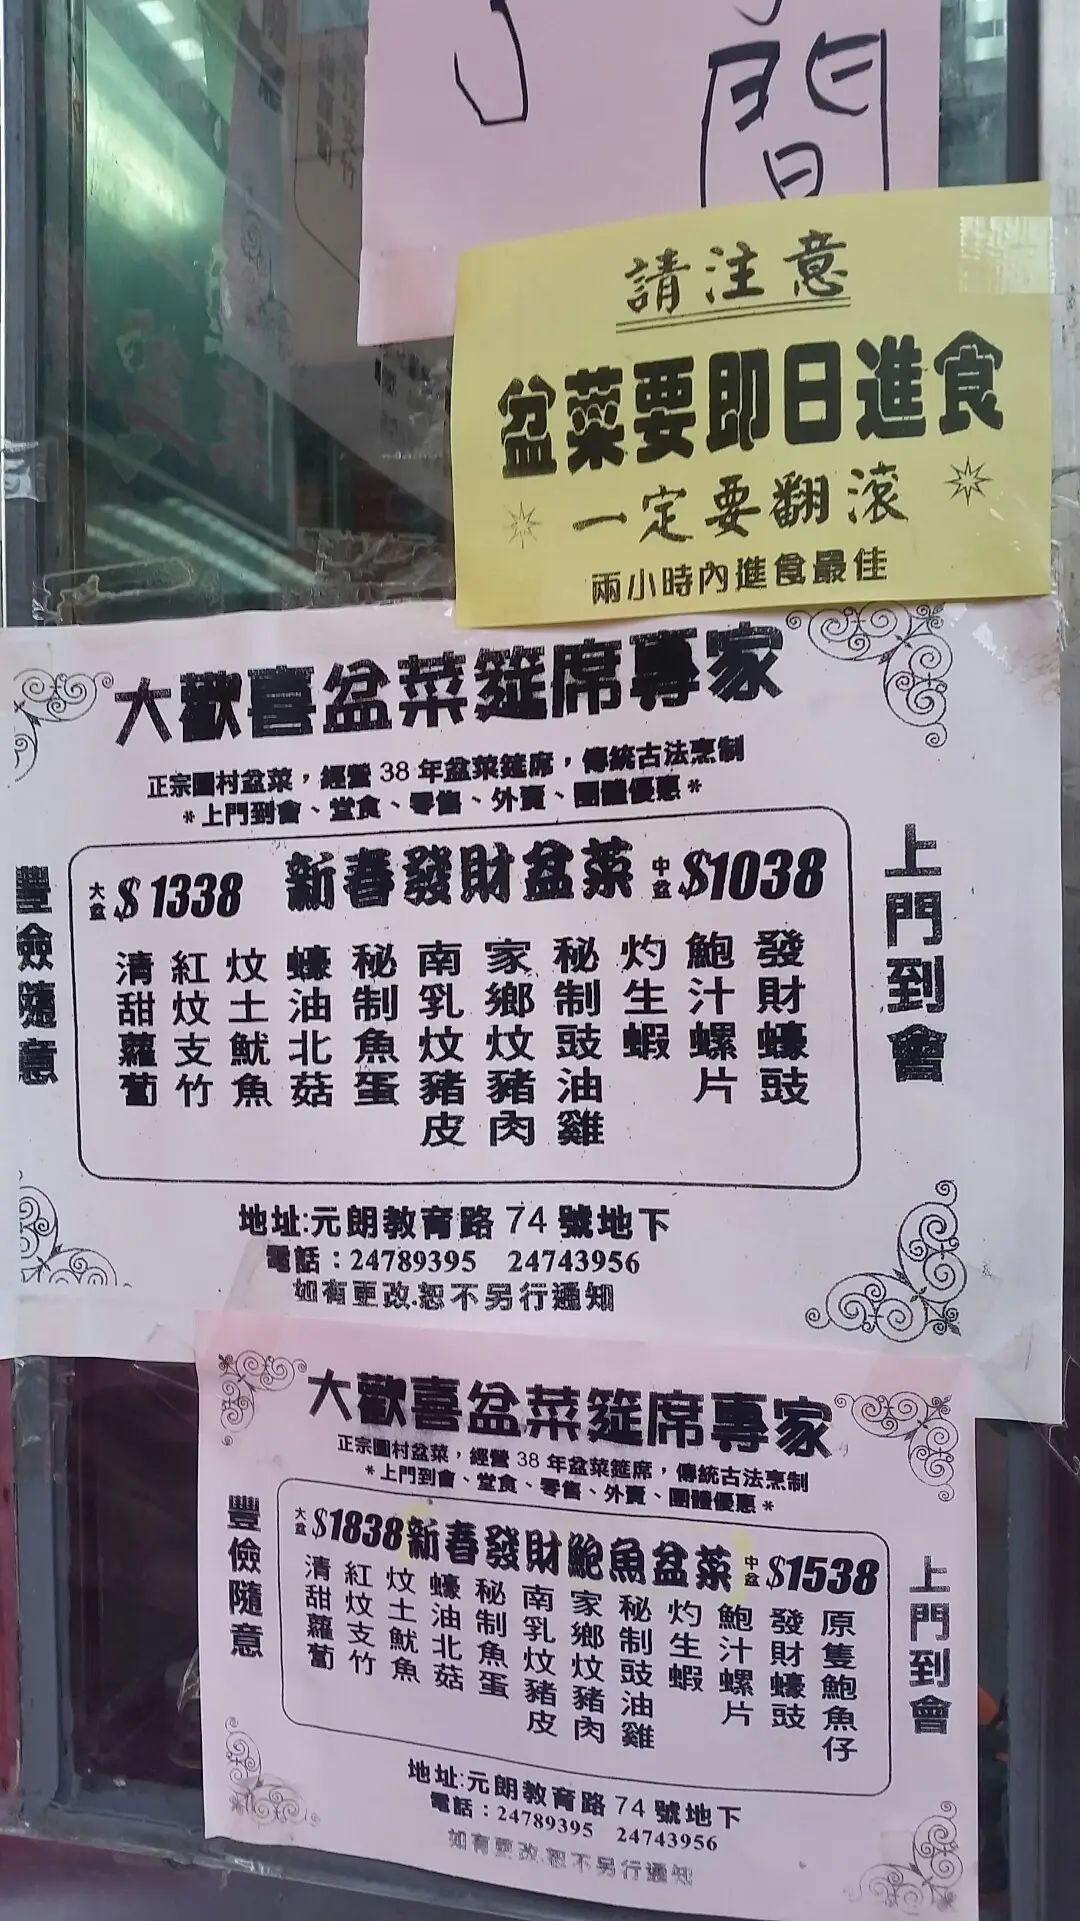 間
請注意
盆菜要即日進食
一定要翻滾
兩小時內進食最佳
大歡喜盆菜筵席專家
正宗圍村盆菜，經營38年盆菜筵席，傳統古法烹制
*上門到會、堂食、零售、外賣、團體優惠*
豐儉隨意
上門到會
大盆$1338 新春發財盆菜 中盆$1038
發財蠔豉
鮑汁螺片
灼生蝦
秘制豉油雞
家鄉炆豬肉
南乳炆豬皮
秘制魚蛋
蠔油北菇
炆土魷魚
紅炆支竹
清甜蘿蔔
地址:元朗教育路74號地下
電話：24789395 24743956
如有更改.恕不另行通知
大歡喜盆菜筵席專家
正宗圍村盆菜，經營38年盆菜筵席，傳統古法烹制
*上門到會、堂食、零售、外賣、團體優惠*
豐儉隨意
上門到會
大盆$1838 新春發財鮑魚盆菜 中盆$1538
原隻鮑魚仔
發財蠔豉
鮑汁螺片
灼生蝦
秘制豉油雞
家鄉炆豬肉
南乳炆豬皮
秘制魚蛋
蠔油北菇
炆土魷魚
紅炆支竹
清甜蘿蔔
地址:元朗教育路74號地下
電話：24789395 24743956
如有更改.恕不另行通知